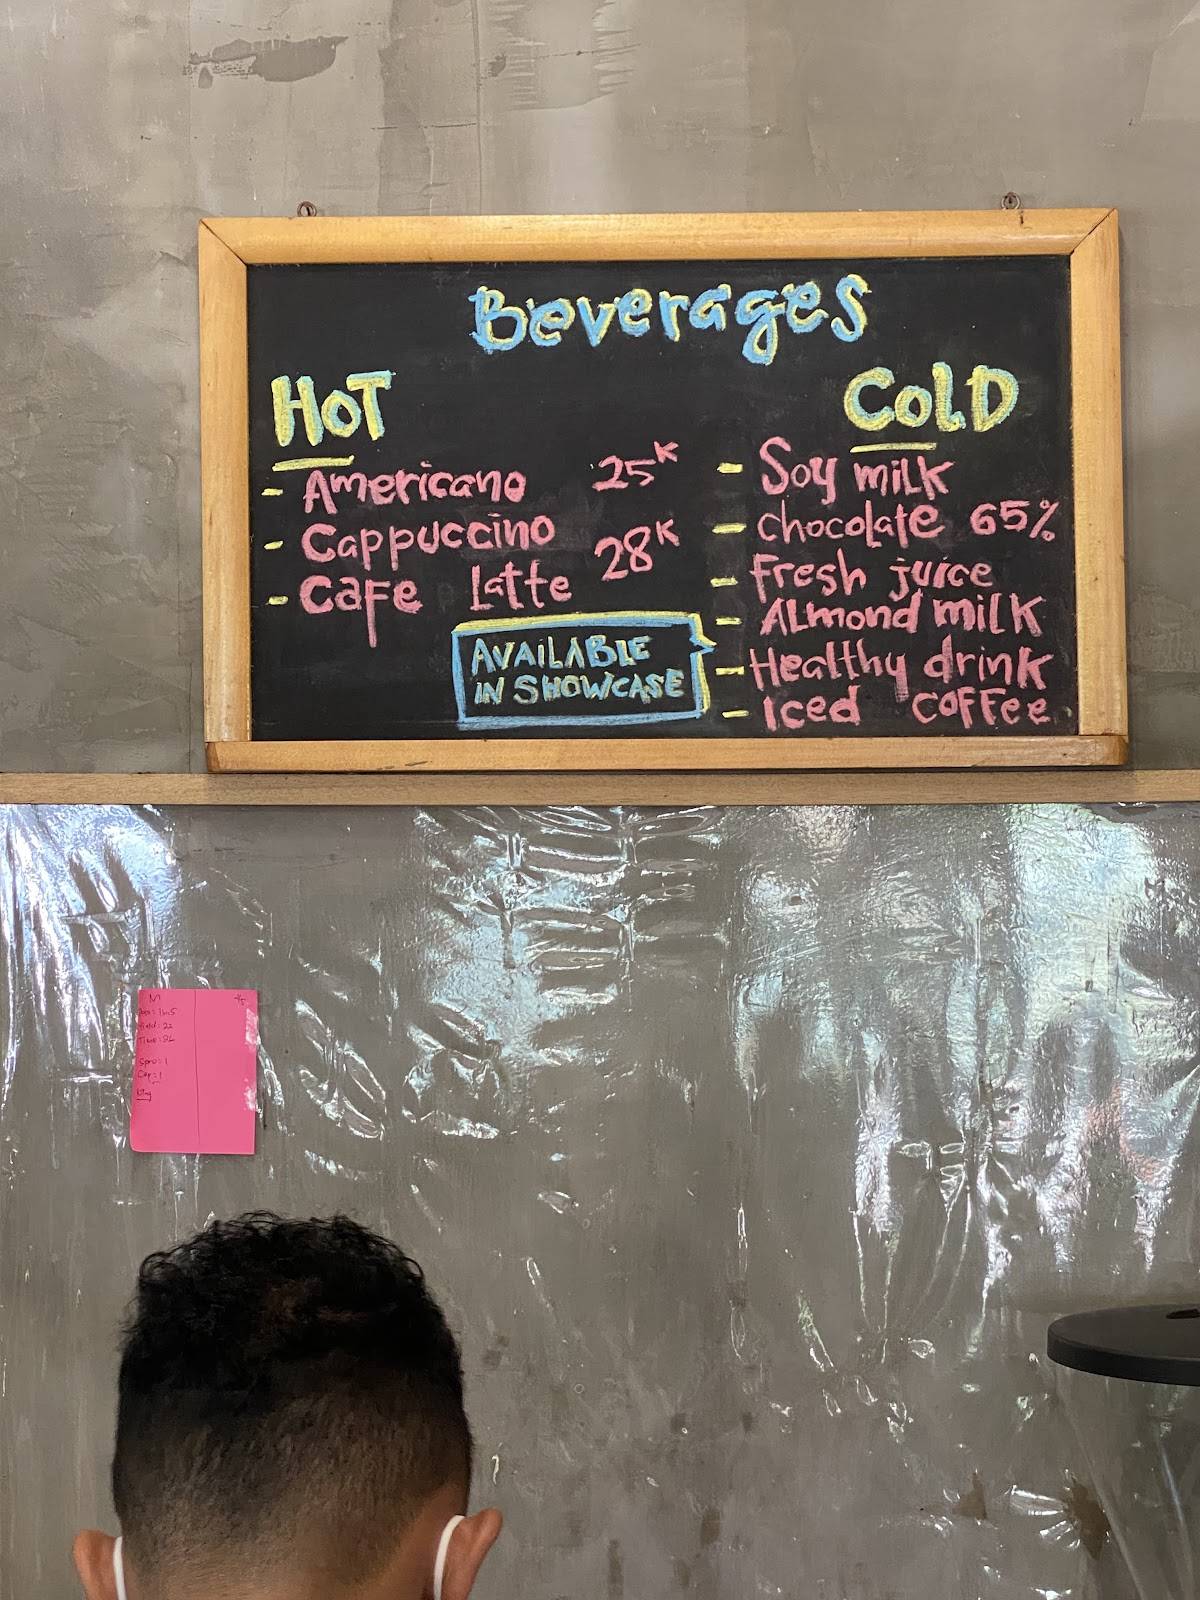 Beverages
HOT
- Americano 25K
- Cappuccino 28K
- Cafe Latte
AVAILABLE
IN SHOWCASE
COLD
- Soy milk
- Chocolate 65%
- Fresh juice
- Almond milk
- Healthy drink
- Iced coffee
M
Time:
Spro=1
Cap=1